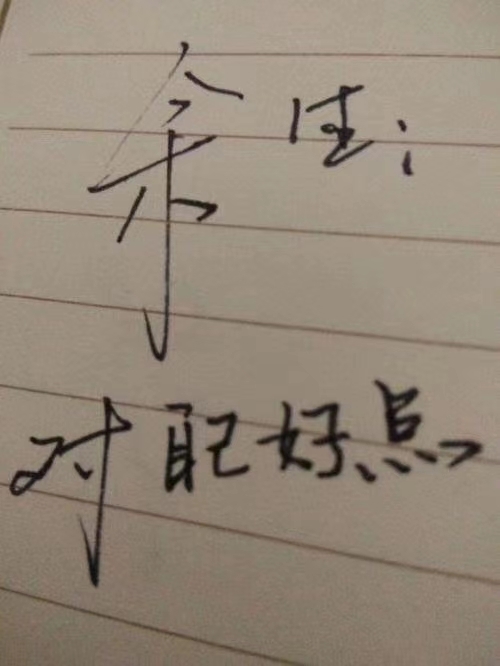 余生;
对自己好点